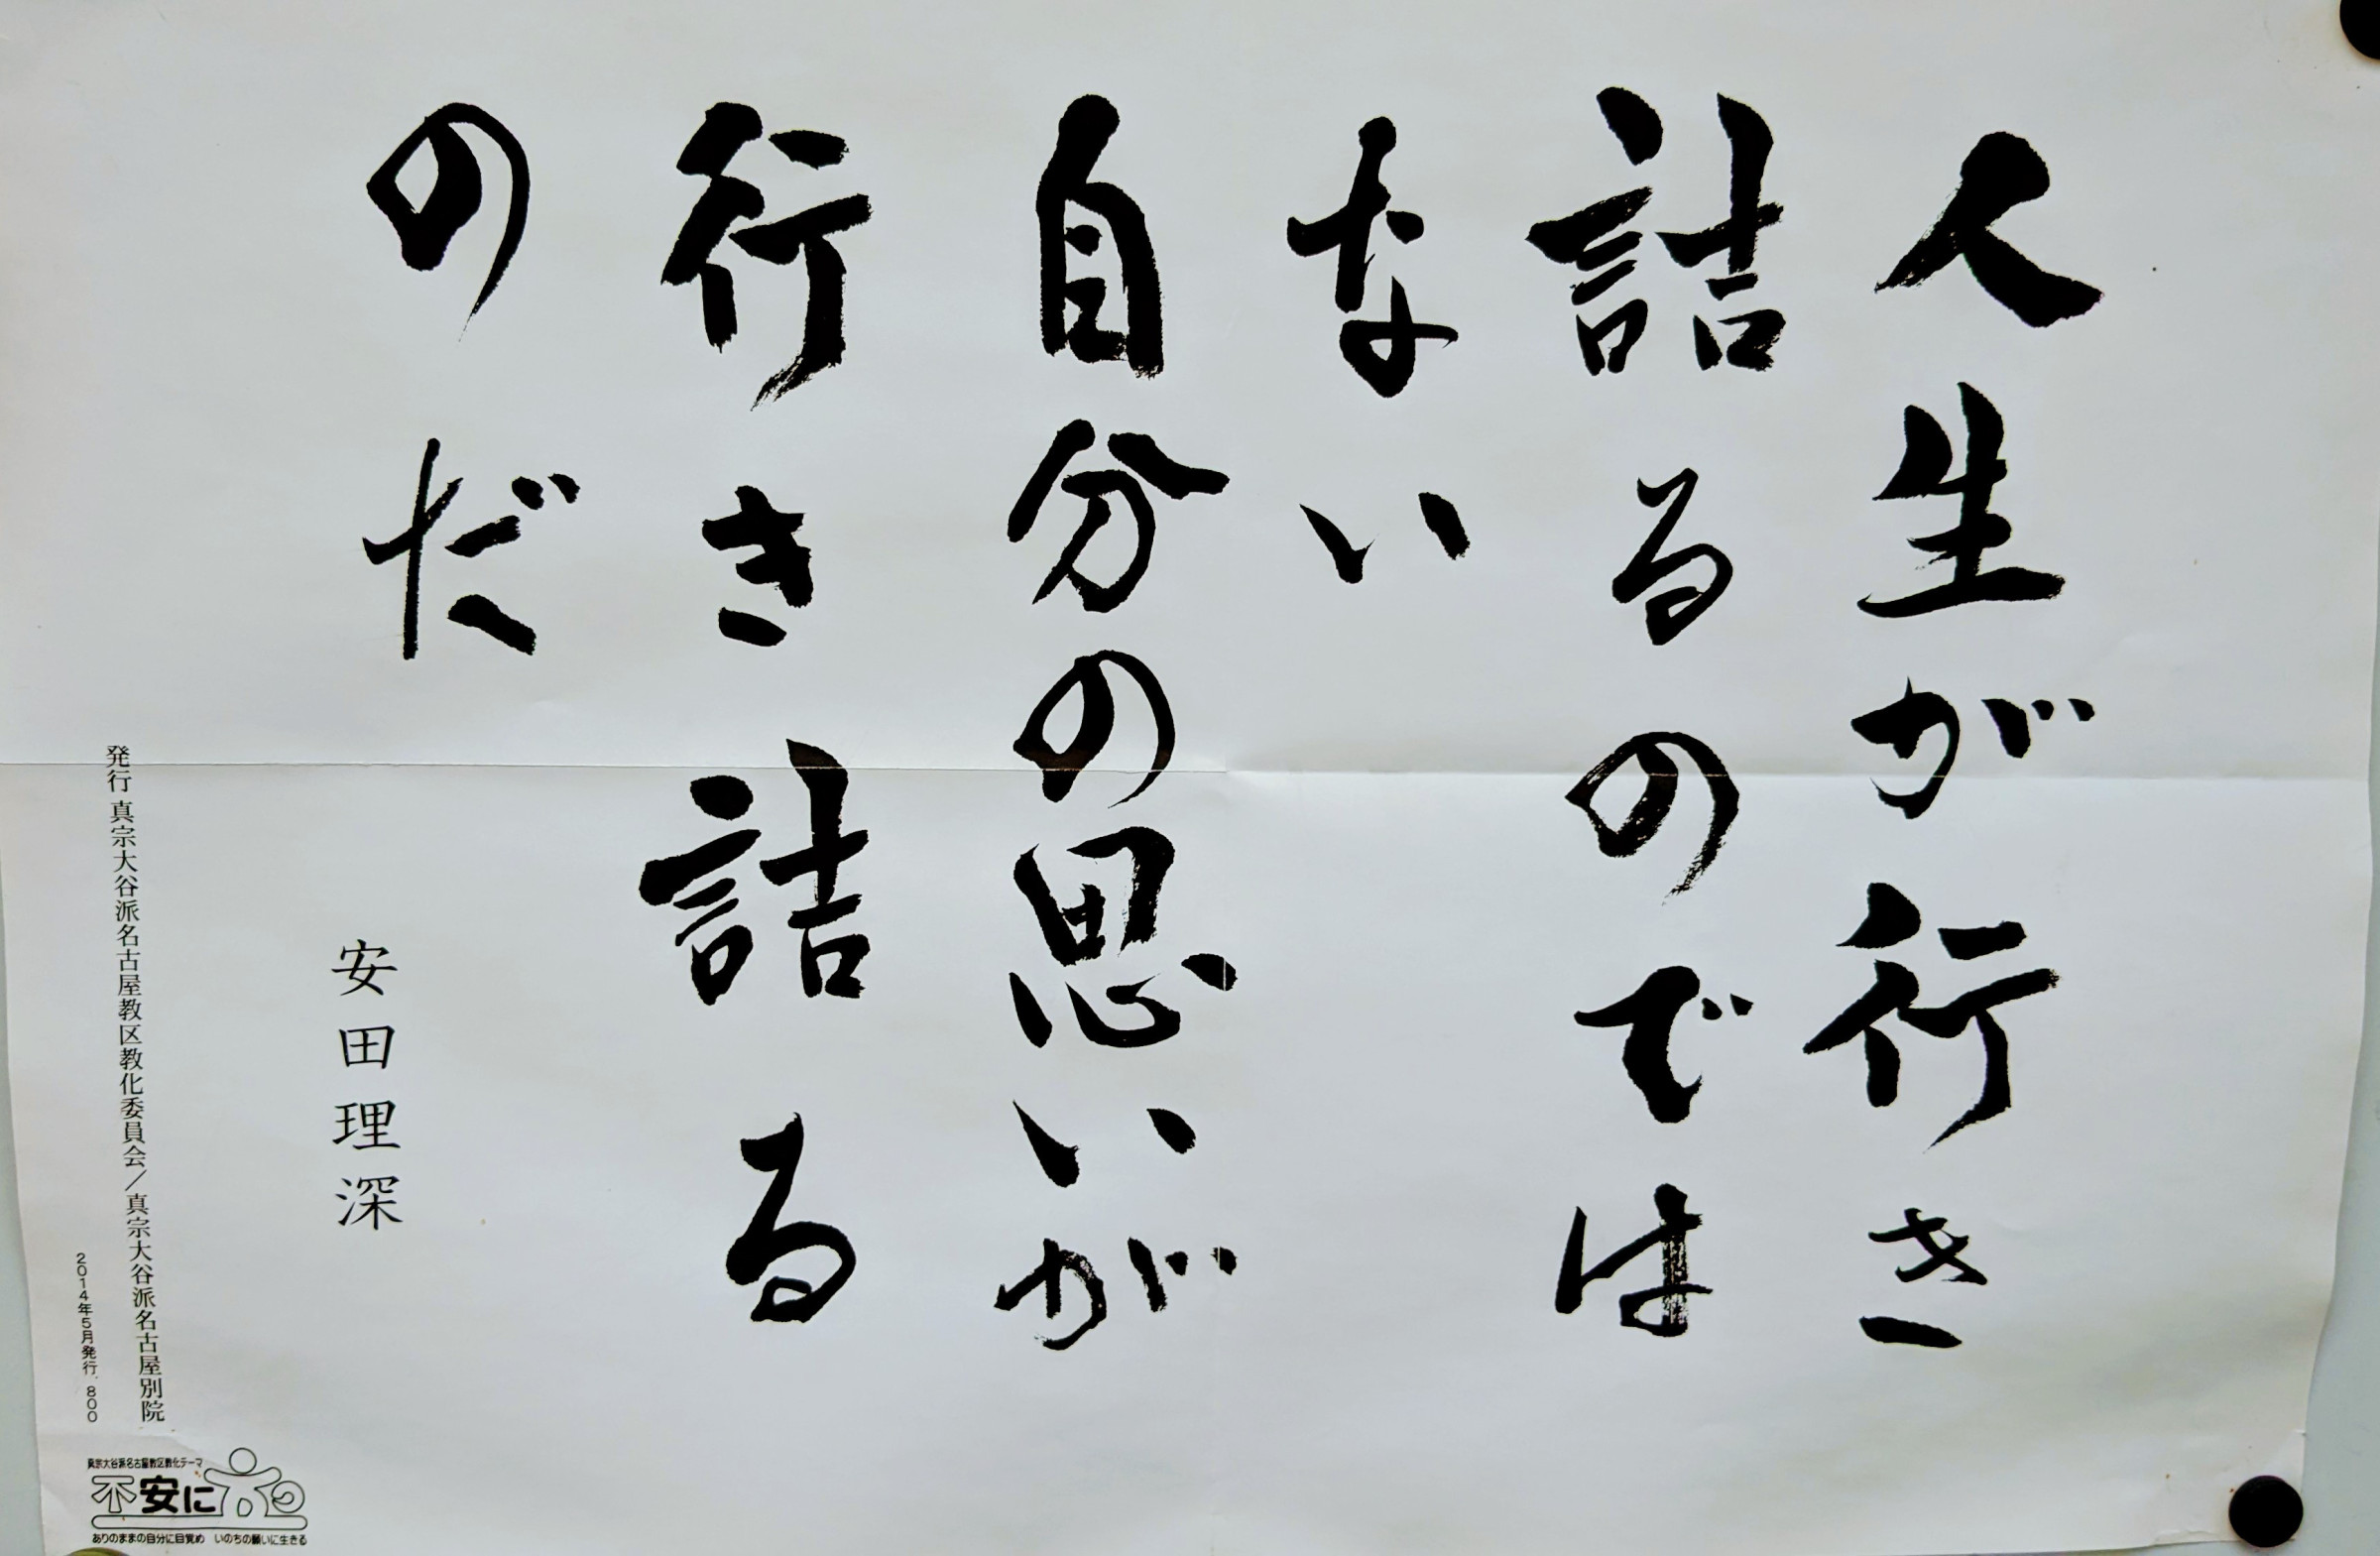 人生が行き
詰るのでは
ない
自分の思いが
行き詰る
のだ
安田理深
発行 真宗大谷派名古屋教区教化委員会/真宗大谷派名古屋別院
2014年5月発行. 800
真宗大谷派名古屋教区教化テーマ
不安に
ありのままの自分に目覚め いのちの願いに生きる